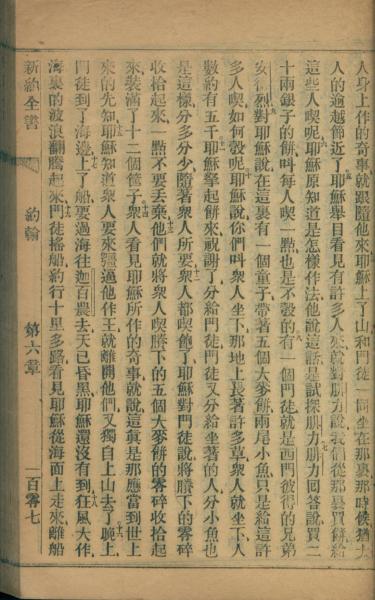 人身上作的奇事就跟隨他來耶穌上了山和門徒一同坐在那裏那時候猶太
人的逾越節近了耶穌舉目看見有許多人來就對腓力說我們從那裏買餅給
這些人喫呢耶穌原知道是怎樣作法他說這話是試探腓力腓力回答說買二
十兩銀子的餅叫每人喫一點也是不彀的有一個門徒就是西門彼得的兄弟
安得烈對耶穌說在這裏有一個童子帶著五個大麥餅兩尾小魚只是給這許
多人喫如何彀呢耶穌說你們叫衆人坐下那地上長著許多草衆人就坐下人
數約有五千耶穌擎起餅來祝謝了分給門徒門徒又分給坐著的人分小魚也
是這樣分多分少隨著衆人所要衆人都喫飽了耶穌對門徒說將賸下的零碎
收拾起來一點不要丟棄他們就將衆人喫賸下的五個大麥餅的零碎收拾起
來裝滿了十二個筐子衆人看見耶穌所作的奇事就說這眞是那應當到世上
來的先知耶穌知道衆人要來强逼他作王就離開他們又獨自上山去了晚上
門徒到了海邊上了船要過海往迦百農去天已昏黑耶穌還沒有到狂風大作
海裏的波浪翻騰起來門徒搖船約行十里多路看見耶穌從海面上走來離船
新約全書 約翰 第六章 一百零七